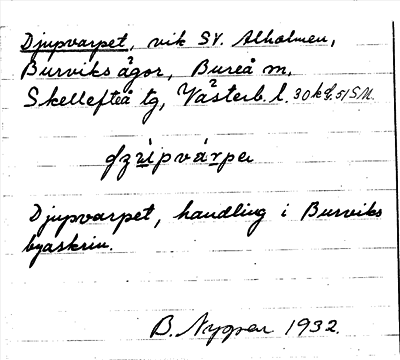 Djupvarpet, vik SV. Alholmen,
Burviks ägor, Bureå sn,
Skellefteå tg, Västerb. l. 30 k 
Djupvarpet, handling i Burviks
byaskrin.
B. Nygren 1932.